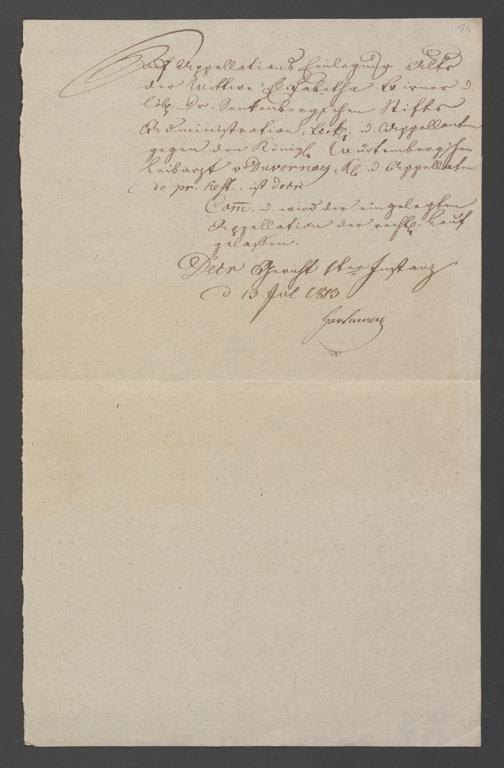 14
Auf Appellations Einlegung Alts
der Wittwe Elisabetha Birner d.
löbl. Dr. Senkenbergischen Stifts
Administration, Bekl. u. Appellanten
gegen den Königl. Würtembergischen
Leibarzt v. Duvernoy, Kl. u. Appellaten
de pr. ist Decr.
Com. u. wird der eingelegten
Appellation der rechtl. Lauf
gelassen.
Decr. Gericht 1ter Instanz
d. 13. Jul 1813